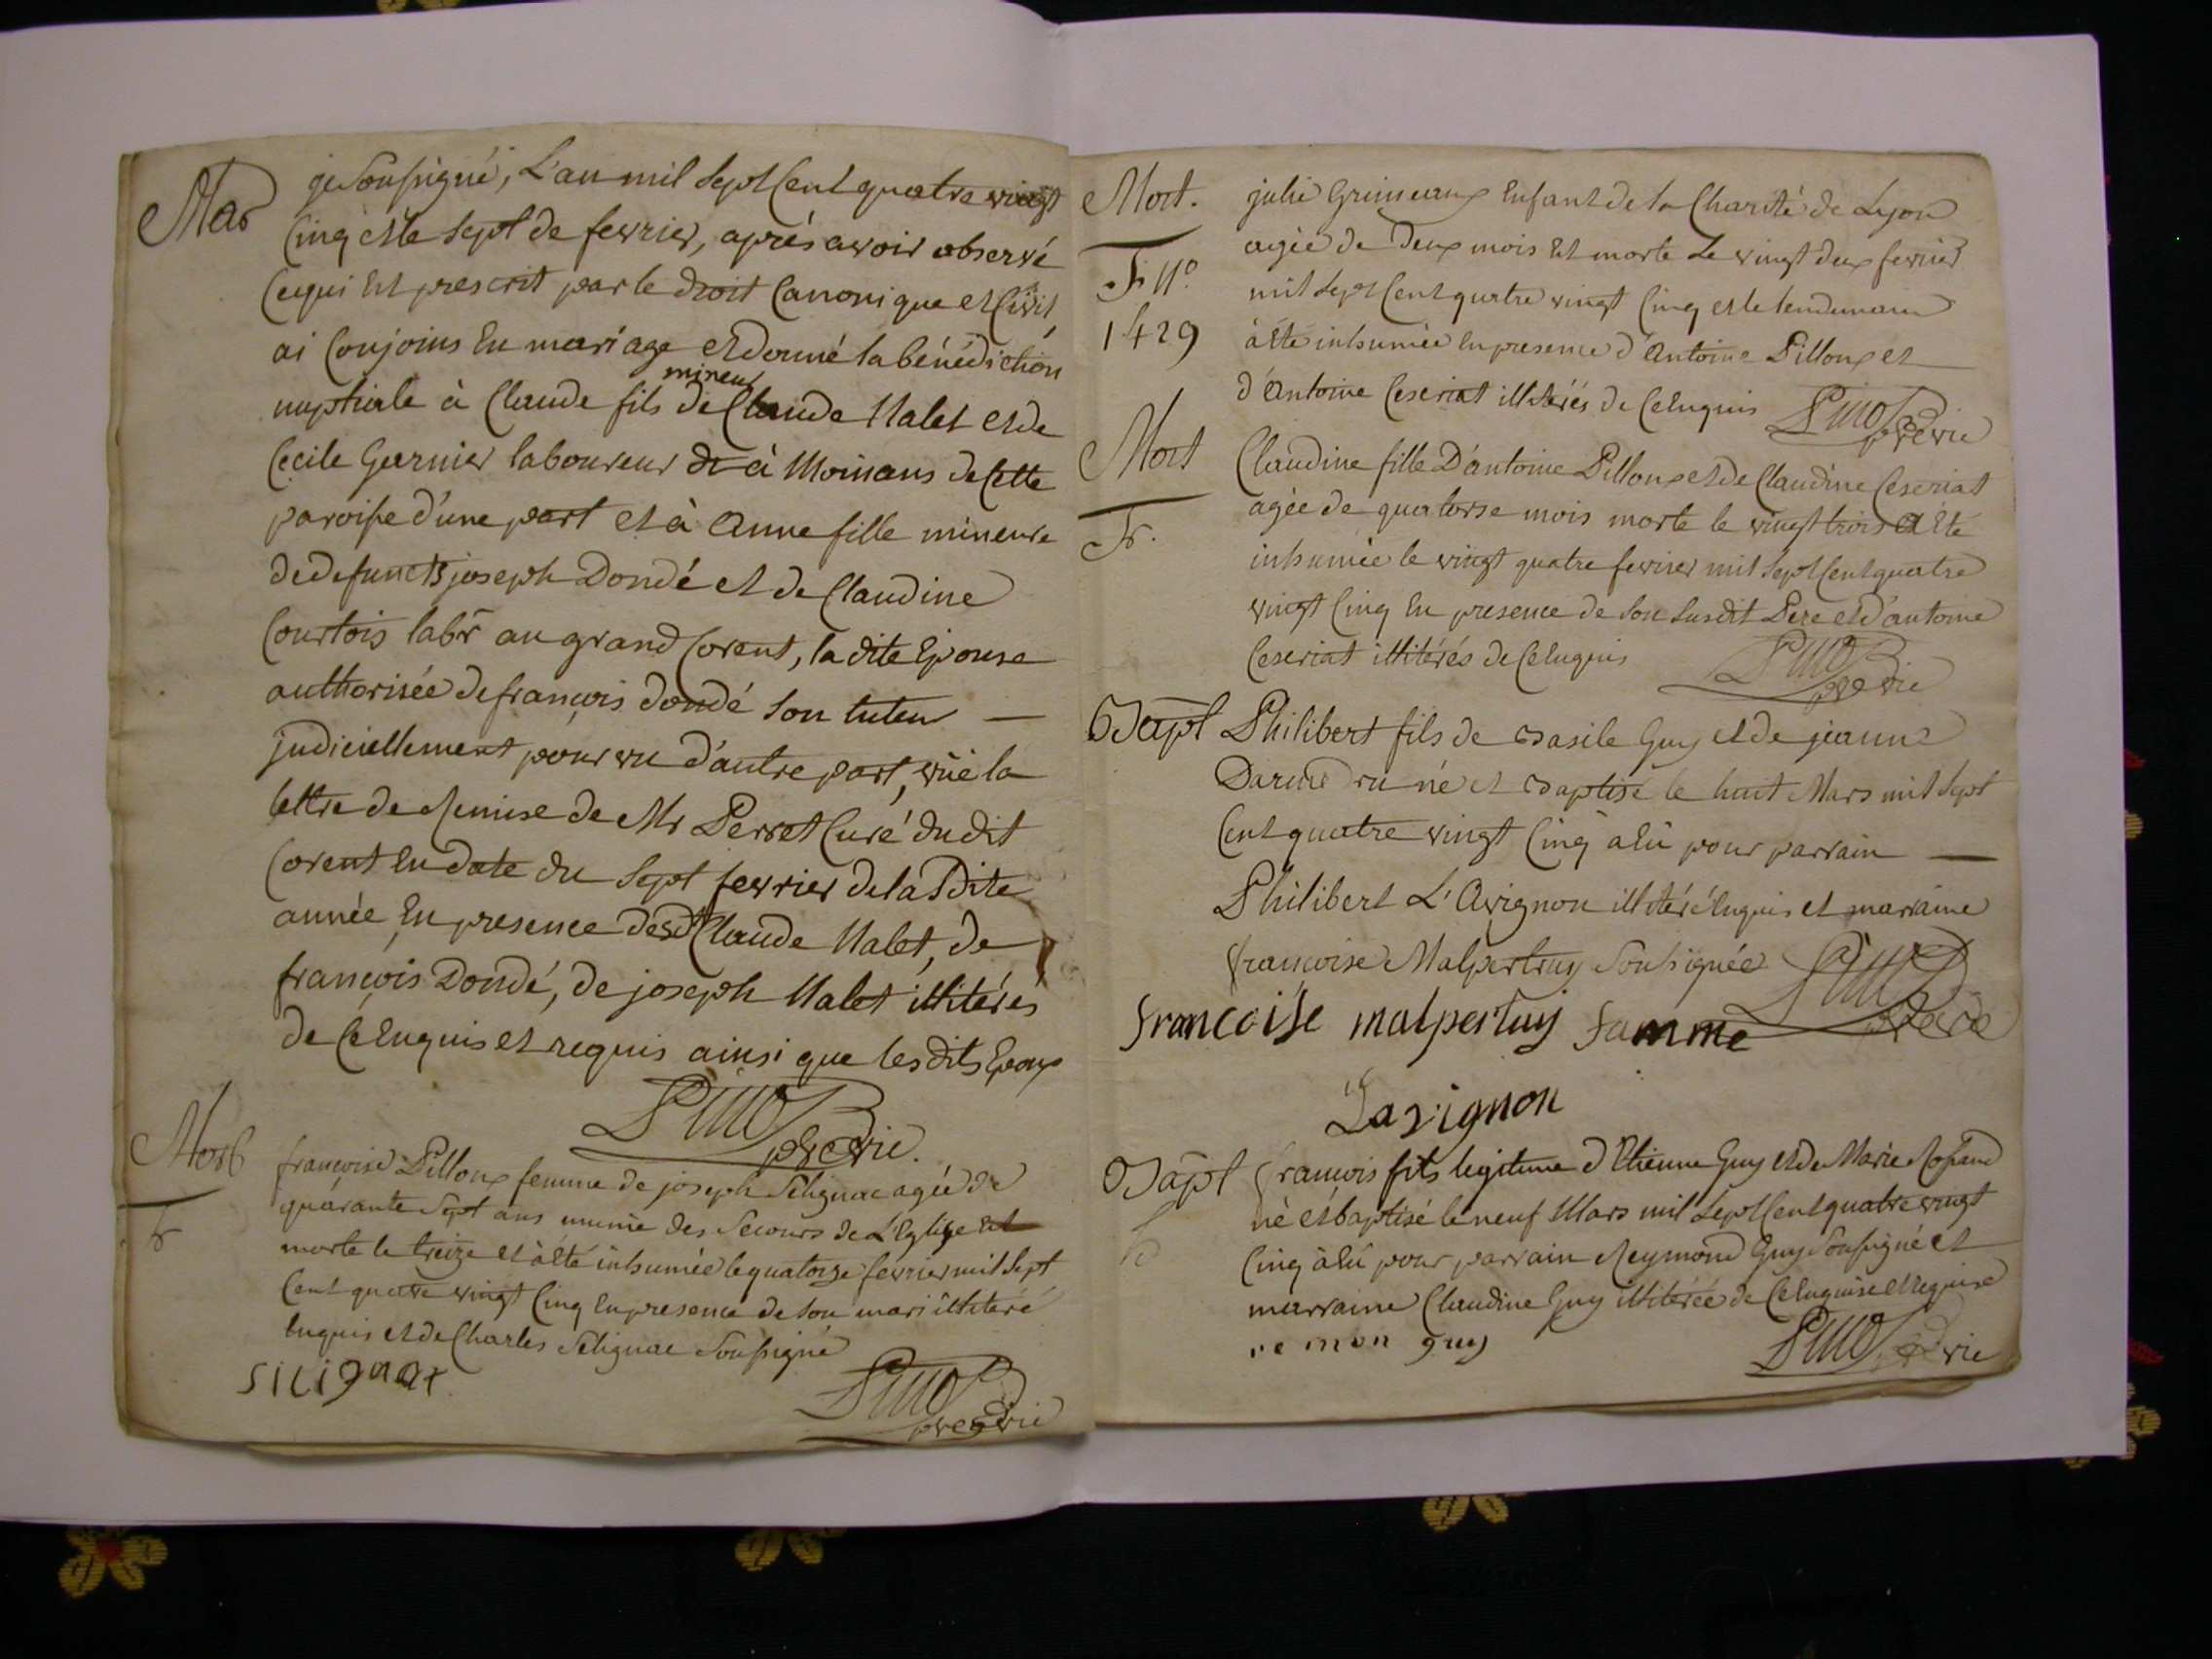 Mar
je soussigné, L'an mil sept cent quatre vingt
cinq et le sept de fevrier, aprés avoir observé
ce qui est prescrit par le droit canonique et civil,
ai conjoins en mariage et donné la bénédiction
mineur
nuptiale à Claude fils de Claude Nalet et de
Cecile Guernier laboureur de à Moinans de cette
paroisse d'une part et à Anne fille mineure
de defuncts joseph Dondé et de Claudine
Courtois labr au grand Corent, la dite Epouse
authorisée de françois dondé son tuteur —
judiciellement pour vu d'autre part, vüe la
lettre de Remise de Mr Perret Curé du dit
Corent en date du sept fevrier de la dite
année, En presence desd Claude Nalet, de
françois Dondé, de joseph Nalet illitérés
de ce enquis et requis ainsi que les dits Epoux
previc.
Mort
fr
françoise Pilloux femme de joseph Silignac agée de
quarante sept ans munie des secours de L'Eglise est
morte le treize et à été inhumée le quatorze fevrier mil sept
cent quatre vingt cinq en presence de son mari illiteré
enquis et de Charles Silignac soussigné
silignat
previc
Mort.
Fr No
1429
julie Grimeaux enfant de la Charité de Lyon
agée de deux mois est morte le vingt deux fevrier
mil sept cent quatre vingt cinq et le lendemain
à été inhumée en presence d'Antoine Pilloux et
d'Antoine Ceseriat illiterés de ce enquis
previc
Mort
Fr.
Claudine fille D'antoine Pilloux et de Claudine Ceseriat
agée de quatorse mois morte le vingt trois a été
inhumée le vingt quatre fevrier mil sept cent quatre
vingt cinq en presence de son susdit Pere et d'antoine
Ceseriat illitérés de ce enquis
previc
Bapt
Philibert fils de Basile Guy et de jeanne
né et Baptisé le huit Mars mil sept
cent quatre vingt cinq à eu pour parrain —
Philibert L'Avignon illitéré enquis et marraine
françoise Malpertuy soussignée
previc
francoise malpertuy famme
Lavignon
Bapt
françois fils legitime d'Etienne Guy et de Marie
né et baptisé le neuf Mars mil sept cent quatre vingt
cinq à eu pour parrain Reymond Guy soussigné et
marraine Claudine Guy illitérée de ce enquise et requise
re mon guy
previc